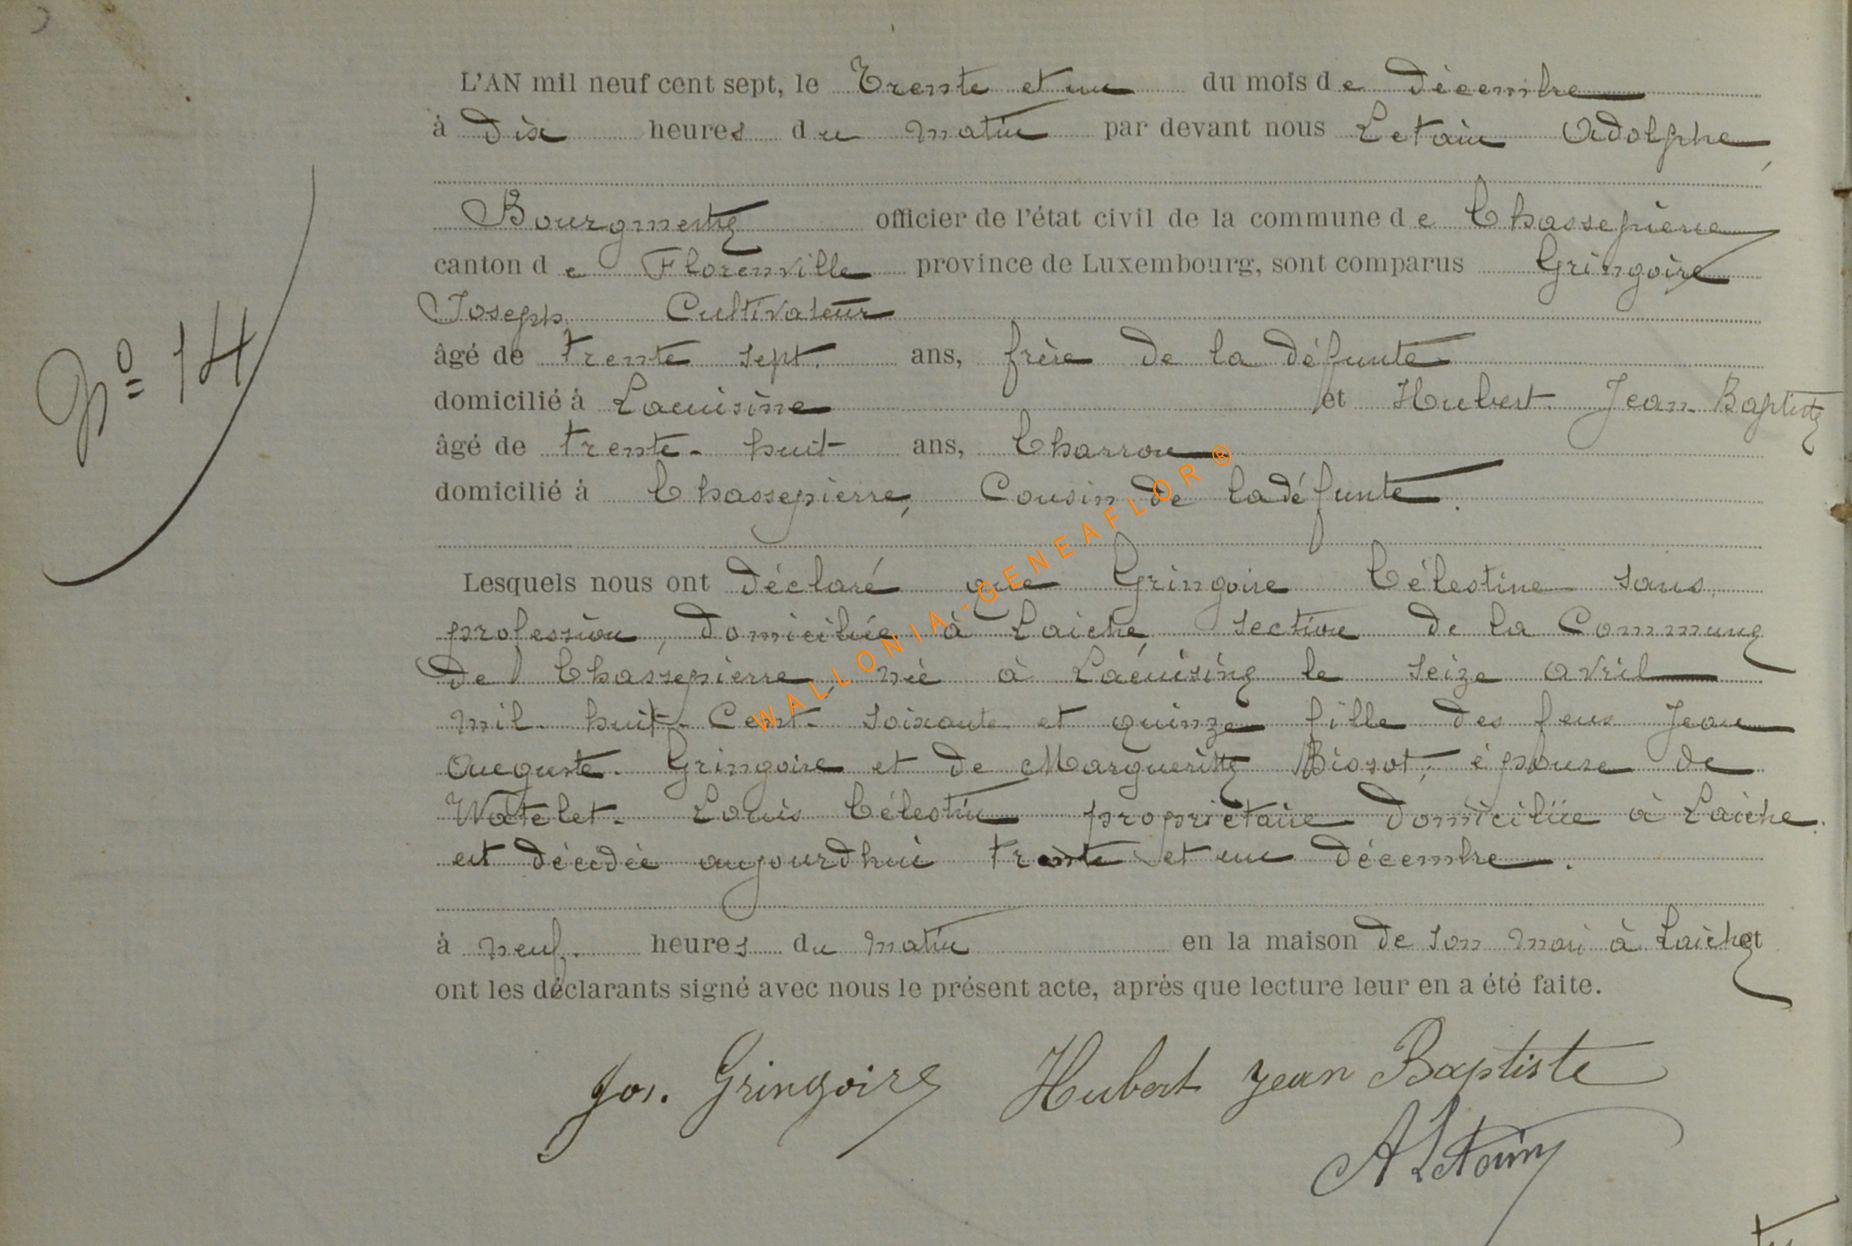 L'AN mil neuf cent sept, le Trente et un du mois de décembre
à dix heures du matin par devant nous Letain Adolphe,
Bourgmestre officier de l'état civil de la commune de Chassepierre
canton de Florenville province de Luxembourg, sont comparus Gringoire
Joseph Cultivateur
âgé de trente sept. ans, frère de la défunte
domicilié à Lacuisine et Hubert Jean-Baptiste
âgé de trente-huit ans, Charron
domicilié à Chassepierre, Cousin de la défunte.
Lesquels nous ont déclaré que Gringoire Célestine sans
profession, domiciliée à Laiche section de la Commune
de Chassepierre née à Lacuisine le seize avril
mil huit-Cent-soixante et quinze fille des feus Jean
Auguste Gringoire et de Marguerite Bissot, épouse de
Watelet Louis Célestin propriétaire domiciliée à Laiche.
est décédée aujourdhui trente et un décembre.
à neuf. heures du matin en la maison de son mari à Laiche et
ont les déclarants signé avec nous le présent acte, après que lecture leur en a été faite.
Nº 14
Jos. Gringoire Hubert Jean Baptiste
A Letain
WALLONIA-GENEAFLOR ®